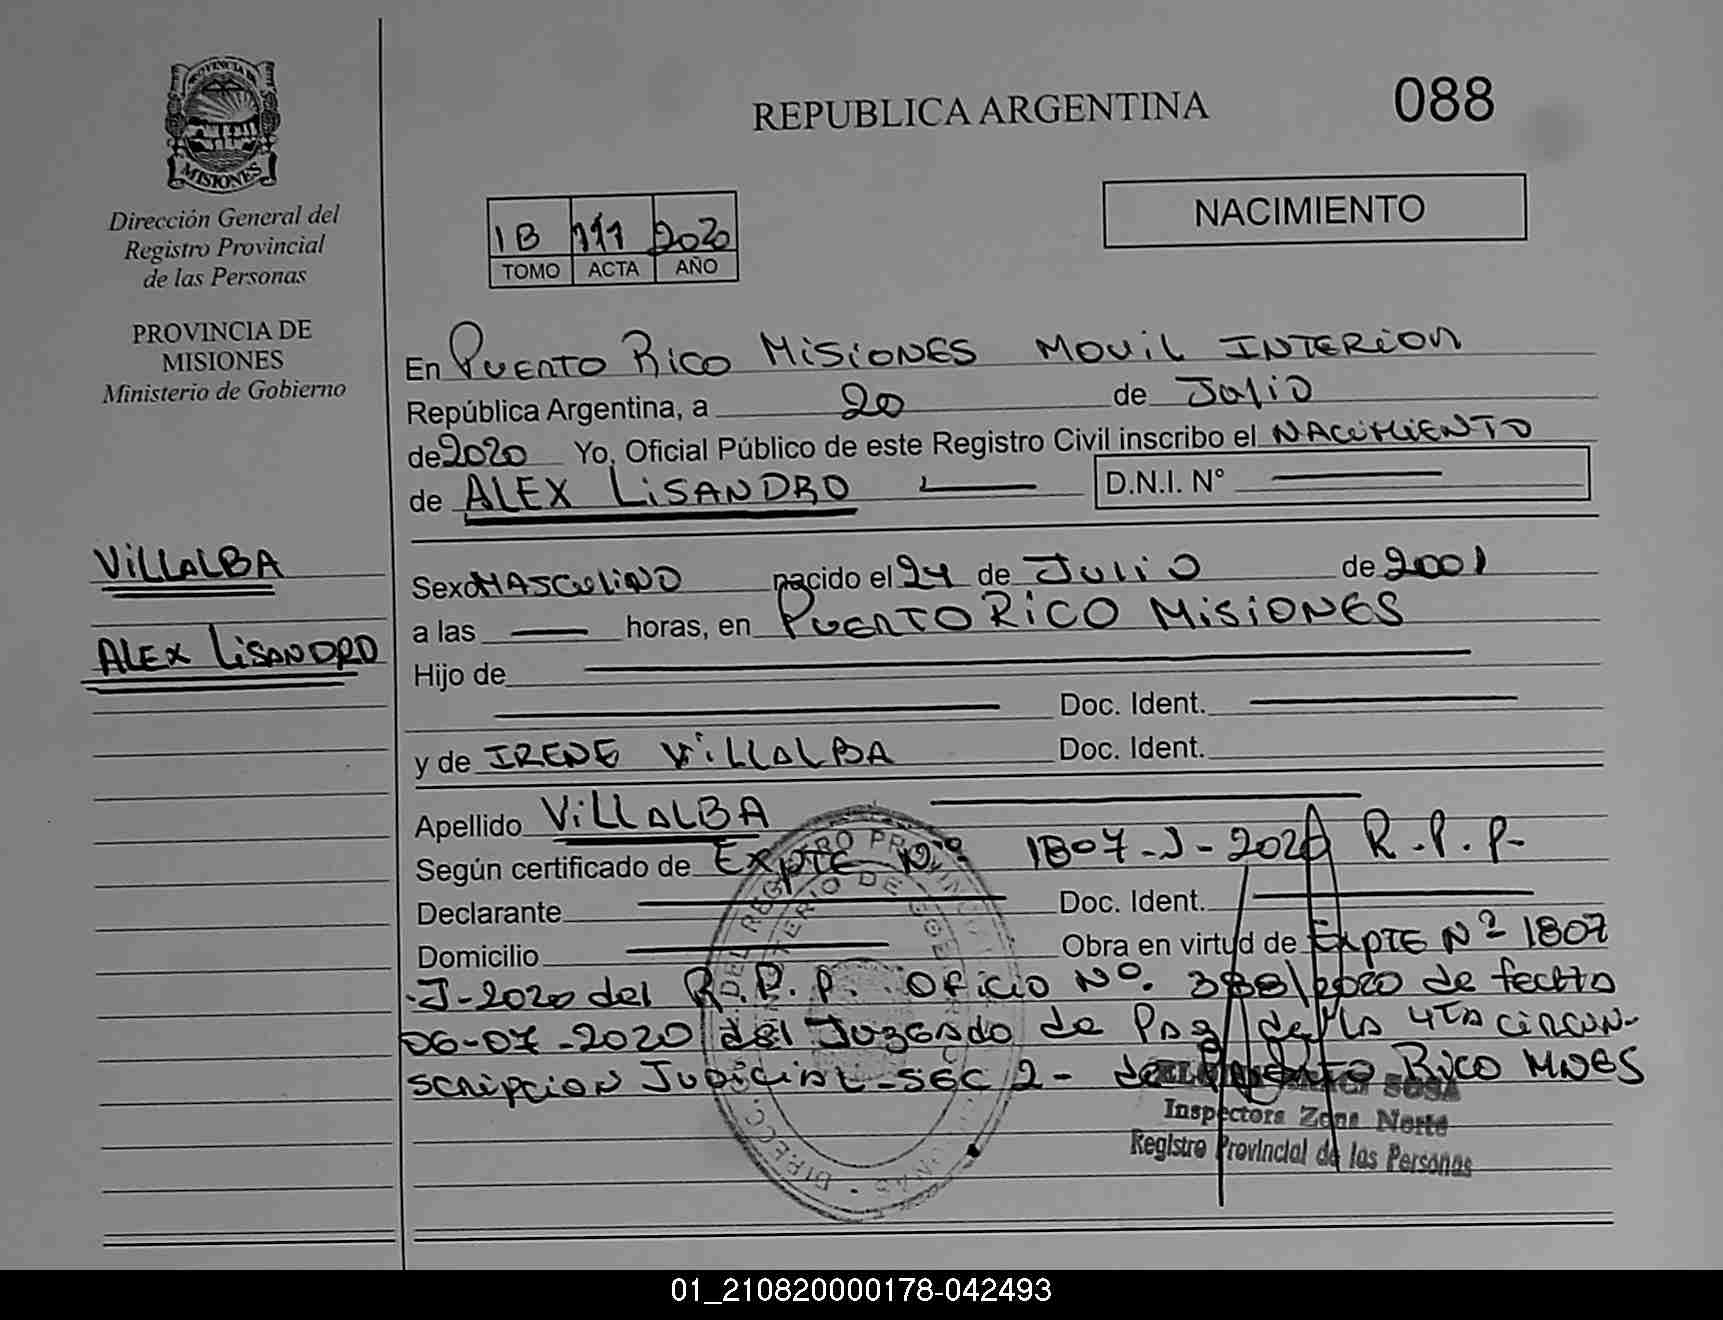 PROVINCIA DE
MISIONES
Dirección General del
Registro Provincial
de las Personas
PROVINCIA DE
MISIONES
Ministerio de Gobierno
VILLALBA
ALEX LISANDRO
REPUBLICA ARGENTINA
088
NACIMIENTO
1B 111 2020
TOMO ACTA AÑO
En PUERTO RICO MISIONES MOVIL INTERIOR
República Argentina, a 20 de Julio
de 2020 Yo, Oficial Público de este Registro Civil inscribo el NACIMIENTO
de ALEX LISANDRO D.N.I. N°
Sexo MASCULINO nacido el 24 de JULIO de 2001
a las horas, en PUERTO RICO MISIONES
Hijo de
Doc. Ident.
y de IRENE VILLALBA Doc. Ident.
Apellido VILLALBA
Según certificado de EXPTE Nº 1807-J-2020 R.P.P.
Declarante Doc. Ident.
Domicilio Obra en virtud de EXPTE Nº 1807
-J-2020 del R.P.P. OFICIO Nº. /2020 de fecha
06-07-2020 del Juzgado de Paz de la 4TA CIRCUN-
SCRIPCION JUDICIAL-SEC 2- de Puerto RICO MNES
SOSA
Inspectora Zona Norte
Registro Provincial de las Personas
01_210820000178-042493